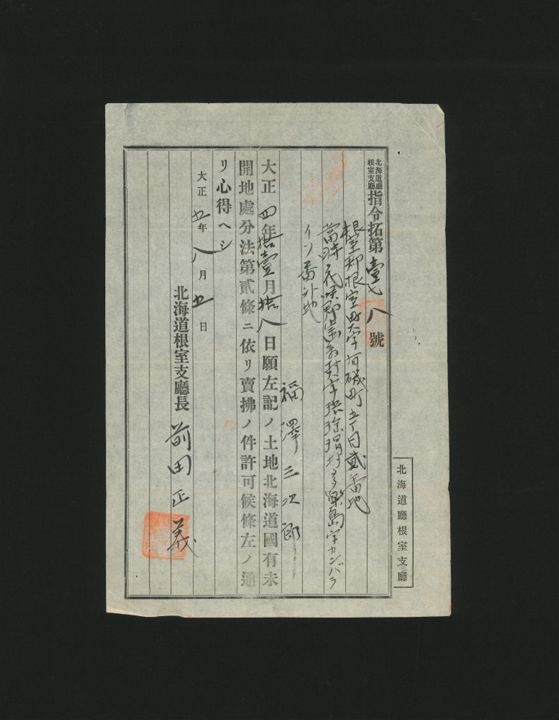 北海道廳根室支廳
北海道廳根室支廳指令拓第壹七八號
根室郡根室町大字有磯町壹丁目貳番地
當時花咲郡
番外地
福澤三次郎
大正四年拾壹月拾八日願左記ノ土地北海道國有未
開地處分法第貳條ニ依リ賣拂ノ件許可候條左ノ通
リ心得ヘシ
大正五年八月五日
北海道根室支廳長 前田正義